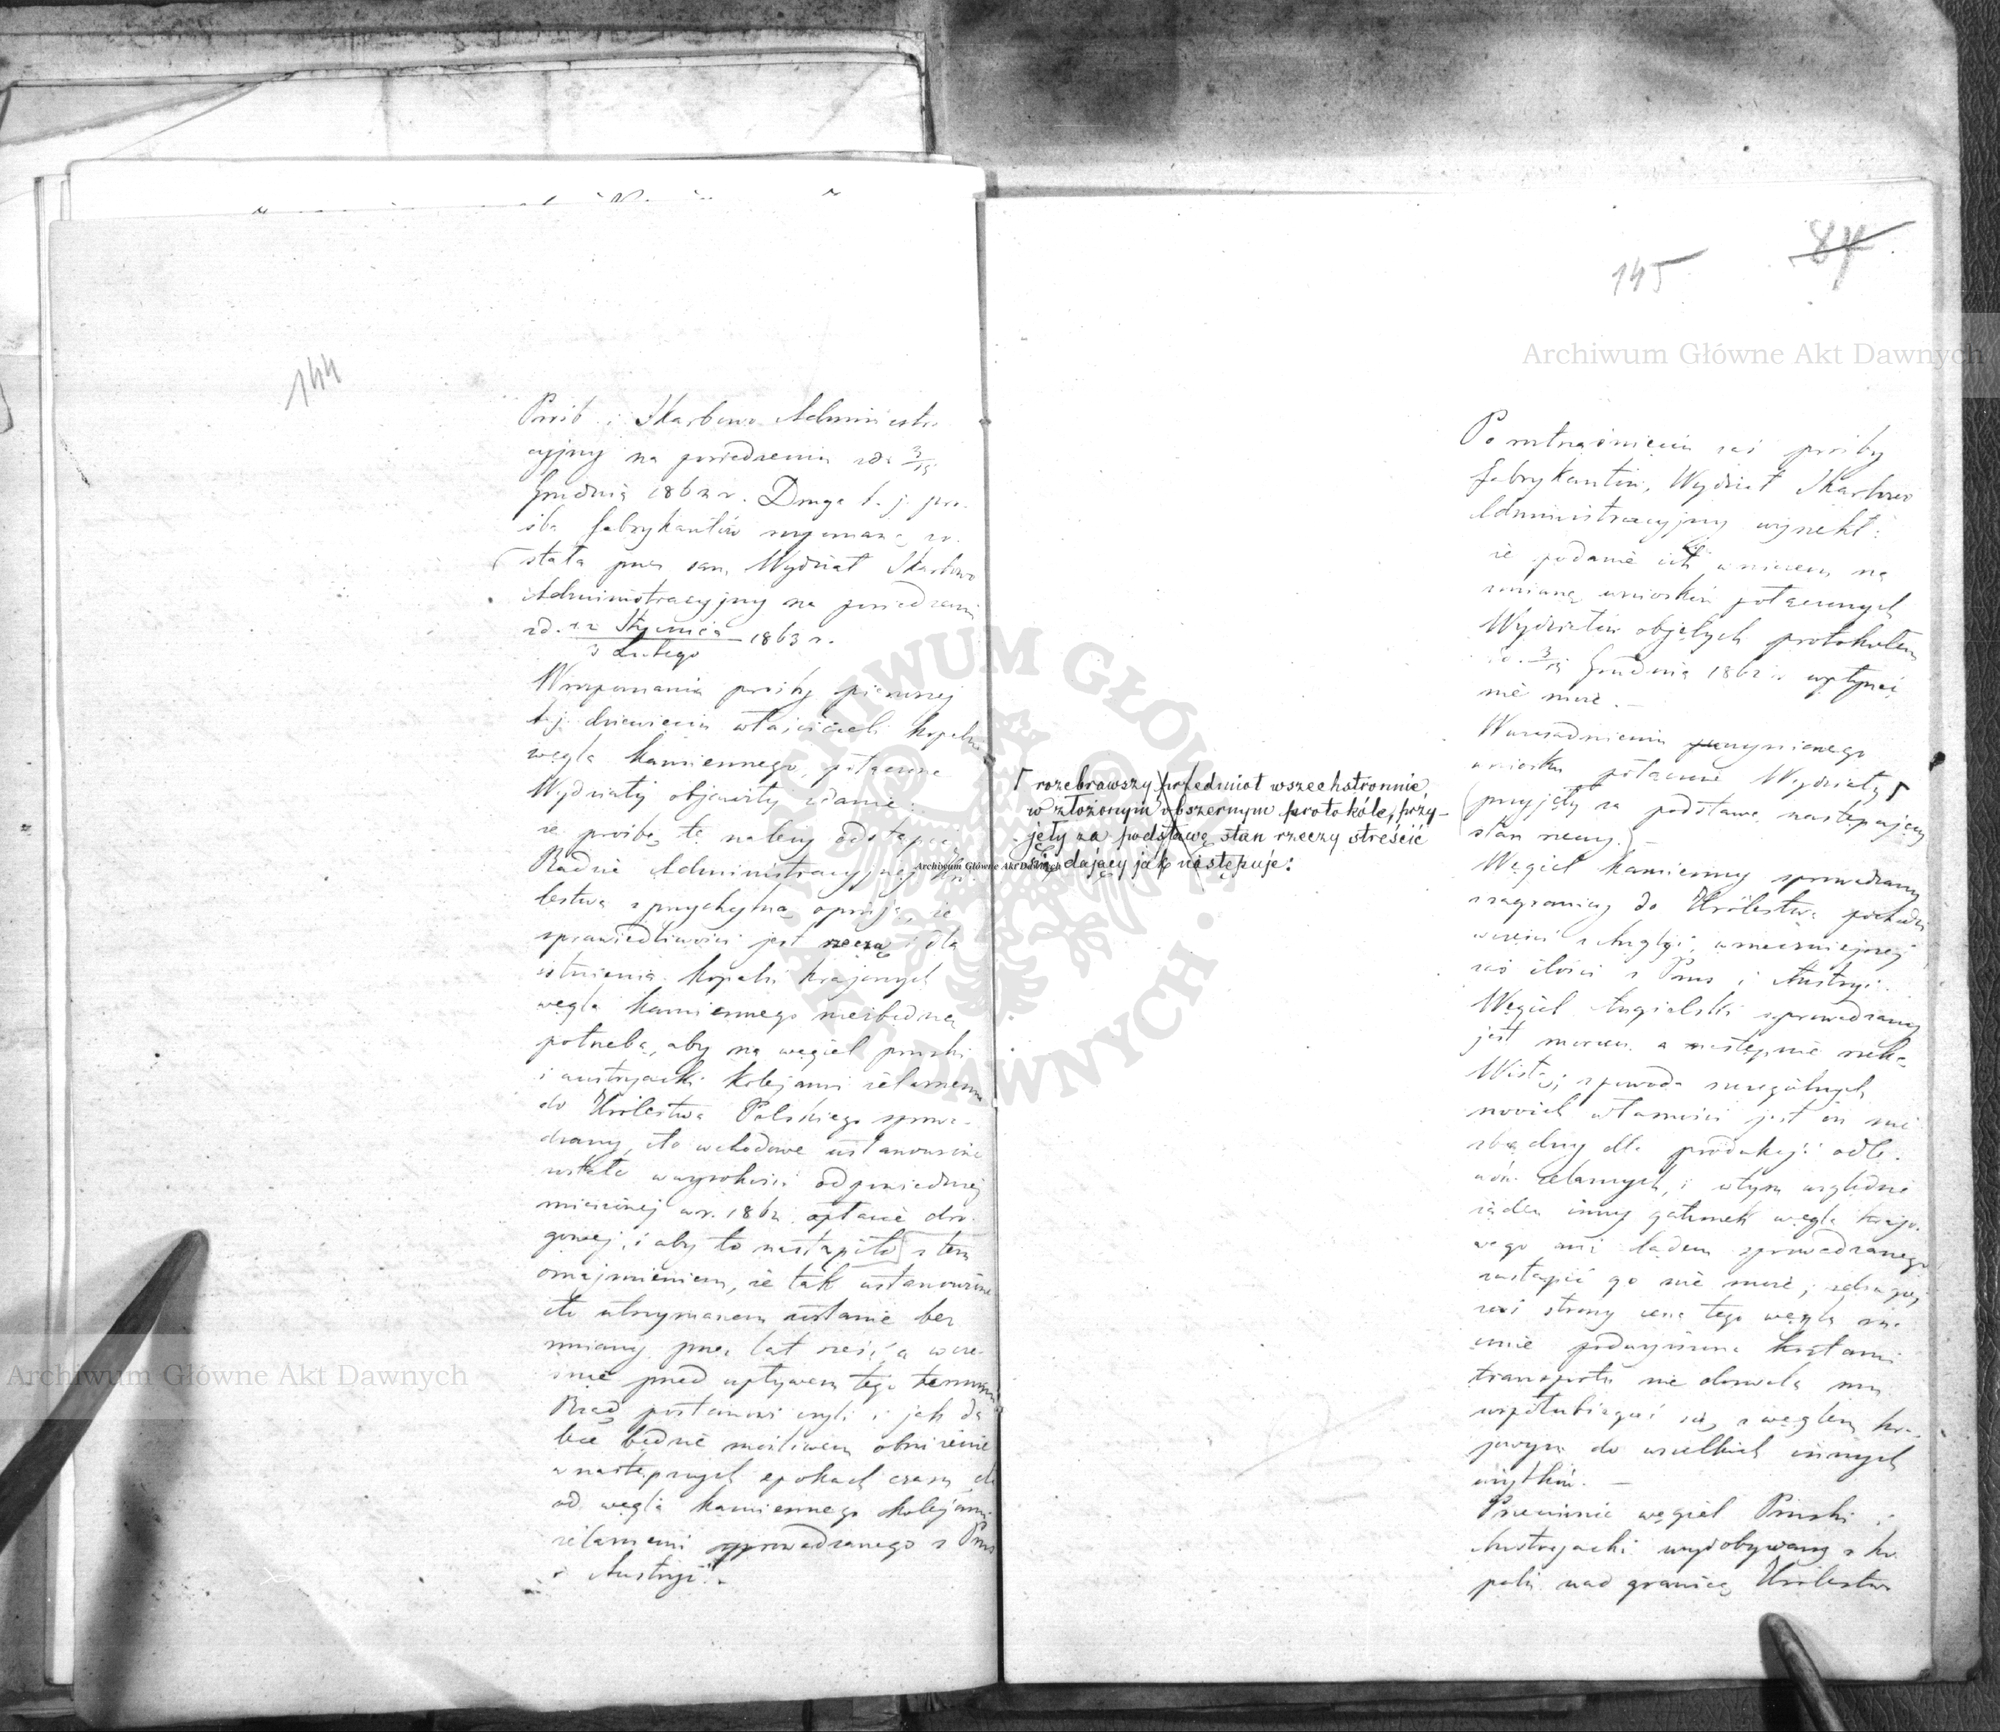 144
Próśb i Skarbowo Administra
cyjny na posiedzeniu zda 3/15
Grudnia 1862 r. Druga t. j. pro-
śba fabrykantów
stała przez sam Wydział Skarbowo
Administracyjny na posiedzeniu
zd. 22 Stycznia / 3 Lutego 1863 r.
prośby pierwszej
t. j. dziewięciu właścicieli kopalni
węgla kamiennego, połączone
Wydziały objawiły zdanie:
że prośbę tę należy odstąpić
Radzie Administracyjnej Kró
lestwa z przychylną opinją, że
sprawiedliwości jest rzeczą i dla
istnienia kopalń krajowych
węgla kamiennego niezbędną
potrzebą, aby na węgiel pruski
i austryacki kolejami żelaznemi
do Królestwa Polskiego sprowa-
dzany, cło wchodowe ustanowione
zostało w wysokości odpowiedniej
zniżonej w r. 1862 opłacie dro-
gowej, i aby to nastąpiło z tem
oznajmieniem, że tak ustanowione
cło utrzymanem zostanie bez
zmiany przez lat sześć, a wcze-
śnie przed upływem tego terminu
Rząd postanowi czyli i jak da
lece będzie możliwem obniżenie
w następnych epokach czasu cła
od węgla kamiennego kolejami
żelaznemi sprowadzanego z Prus
i Austryi.
145
84
Archiwum Główne Akt Dawnych
Po roztrząśnieniu zaś prośby
fabrykantów, Wydział Skarbowo
Administracyjny wyrzekł:
że podanie ich w niczem na
zmianę wniosków połączonych
Wydziałów objętych protokołem
zd. 3/15 Grudnia 1862 r. wpłynąć
nie może. —
W uzasadnieniu uczynionego
wniosku połączone Wydziały
przyjęły za podstawę następujący
stan rzeczy. —
rozebrawszy przedmiot wszechstronnie,
w złożonym obszernym protokóle, przy-
jęły za podstawę stan rzeczy streścić
się dający jak następuje:
Węgiel kamienny sprowadzany
z zagranicy do Królestwa pochodzi
w części z Anglji, w znaczniejszej
zaś ilości z Prus i Austryi.
Węgiel Angielski sprowadzany
jest morzem a następnie rzeką
Wisłą; z powodu szczególnych
swoich własności jest on nie
zbędny dla produkcji odle-
wów żelaznych, i w tym względzie
żaden inny gatunek węgla krajo-
wego ani lądem sprowadzanego
zastąpić go nie może; z drugiej
zaś strony cena tego węgla zna-
cznie podwyższona kosztami
transportu nie dozwala mu
współubiegać się z węglem kra-
jowym do wszelkich innych
użytków. —
Przeciwnie węgiel Pruski i
Austryacki wydobywany z ko-
palń nad granicą Królestwa
Archiwum Główne Akt Dawnych
Archiwum Główne Akt Dawnych
ARCHIWUM GŁÓWNE AKT DAWNYCH